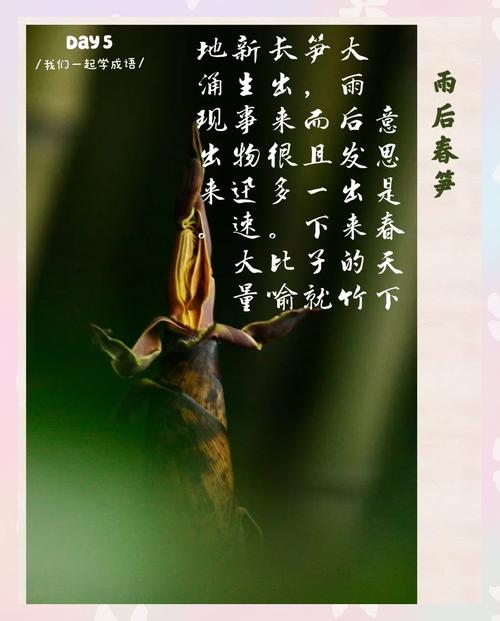 Day 5
/我们一起学成语/
雨后春笋
意思是春天下
大雨后发出来的竹
笋，而且一下子就
长出来很多。比喻
新生事物迅速大量
地涌现出来。